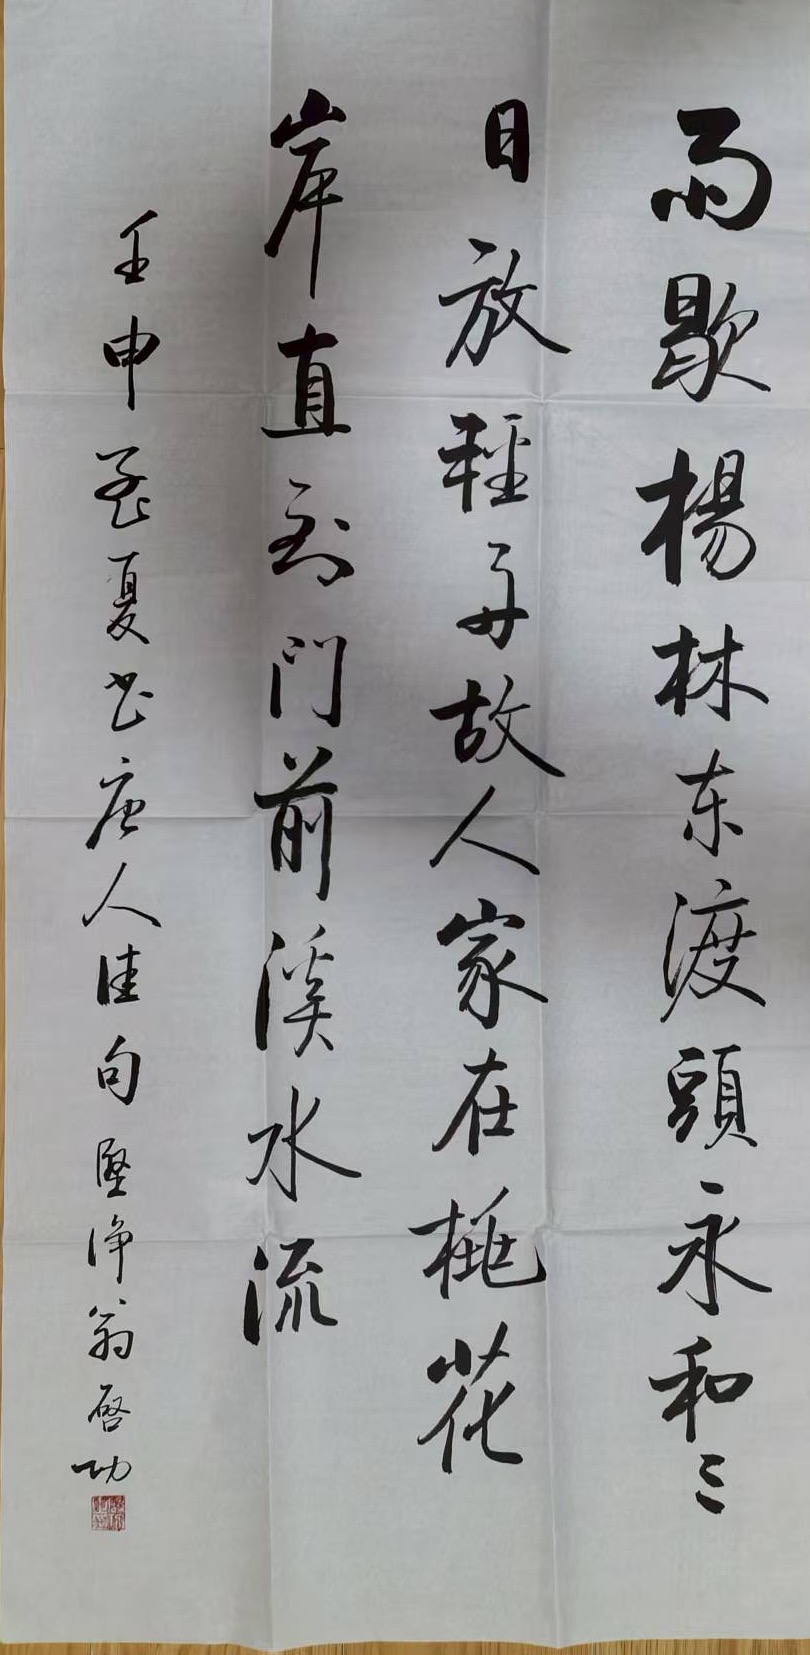 雨歇楊林东渡頭永和三
日放輕舟故人家在桃花
岸直到門前溪水流
壬申孟夏书唐人佳句堅净翁启功